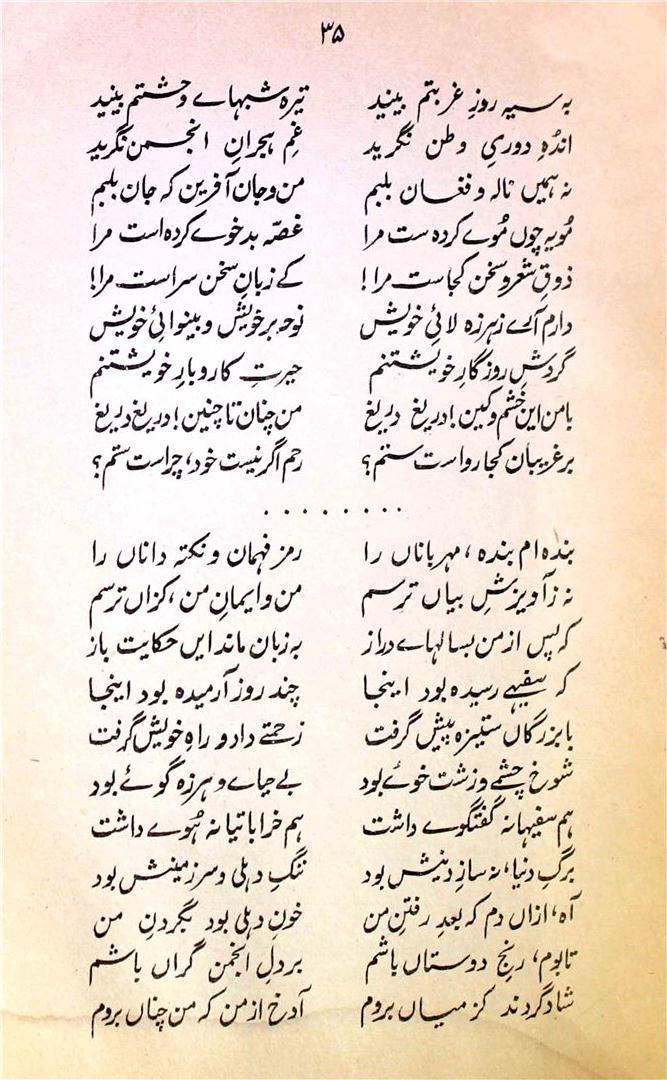 ۳۵
به سیه روزِ غربتم بینید تیره شبہاے وحشتم بینید
اندُهِ دوریِ وطن نگرید غمِ ہجرانِ انجمن نگرید
نہ ہمیں نالہ و فغاں بلبم من و جان آفریں کہ جاں بلبم
مُویہ چوں مُوے کردہ ست مرا غصّہ بدخوے کردہ است مرا
ذوقِ شعر و سخن کجاست مرا! کے زبانِ سخن سراست مرا!
دارم آرے زہرزہ لائیِ خویش نوحہ بر خویش و بینوائیِ خویش
گردشِ روزگارِ خویشتنم حیرتِ کاروبارِ خویشتنم
بامن ایں خشم و کیں! دریغ دریغ من چناں تا چنیں! دریغ دریغ
بر غریباں کجا رواست ستم؟ رحم اگر نیست خود، چراست ستم؟
. . . . . . . .
بندہ ام بندہ، مہرباناں را رمز فہمان و نکتہ داناں را
نہ ز آویزشِ بیاں ترسم من و ایمانِ من، کزاں ترسم
کہ پس از من بسالہاے دراز بہ زباں ماند ایں حکایت باز
کہ سفیہے رسیدہ بود اینجا چند روز آرمیدہ بود اینجا
با بزرگاں ستیزہ پیش گرفت زحمتے داد و راہِ خویش گرفت
شوخ چشمے و زشت خوئے بود بے حیاے و ہرزہ گوئے بود
ہم سفیہانہ گفتگوے داشت ہم خراباتیانہ ہُوے داشت
برگِ دنیا، نہ سازِ دینش بود ننگِ دہلی و سرزمینش بود
آہ، ازاں دم کہ بعدِ رفتنِ من خونِ دہلی بود بگردنِ من
تا بوم، رنجِ دوستاں باشم بر دلِ انجمن گراں باشم
شاد گردند کز میاں بروم آوخ از من کہ من چناں بروم